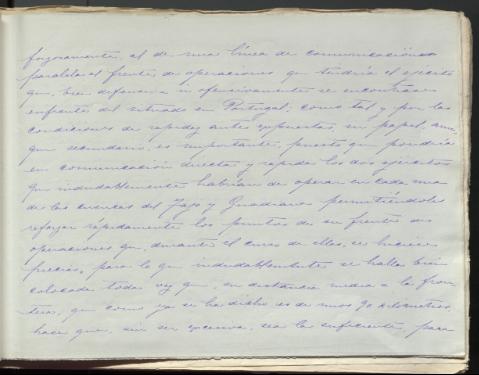 forzosamente, al de una línea de comunicaciones
paralela al frente de operaciones que tendría el ejército
que, bien defensiva u ofensivamente se encontrase
enfrente del situado en Portugal; como tal y por las
condiciones de rapidez antes expuestas, su papel, aun
que secundario, es importante, puesto que pondría
en comunicación directa y rápida los dos ejércitos
que indudablemente habrían de operar en cada una
de las cuencas del Tajo y Guadiana permitiéndole
reforzar rápidamente los puntos de su frente de
operaciones que, durante el curso de ellas, se hiciese
preciso, para lo que indudablemente se halla bien
colocada toda vez que, su distancia media a la fron
tera, que como ya se ha dicho es de unos 90 kilómetros,
hace que, sin ser excesiva, sea la suficiente, para